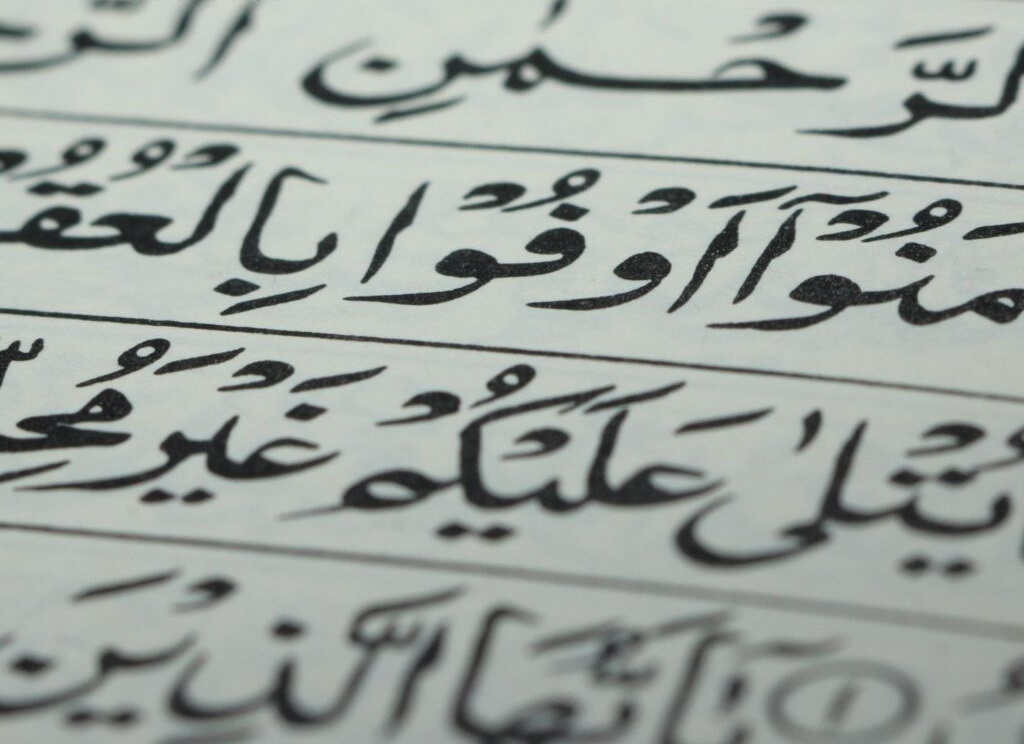 لرَّحْمٰنِ الرَّ
مَنُوْۤا اَوْفُوْا بِالْعُقُ
يُتْلٰى عَلَيْكُمْ غَيْرَ مُحِ
۝١ يٰۤاَيُّهَا الَّذِيْنَ